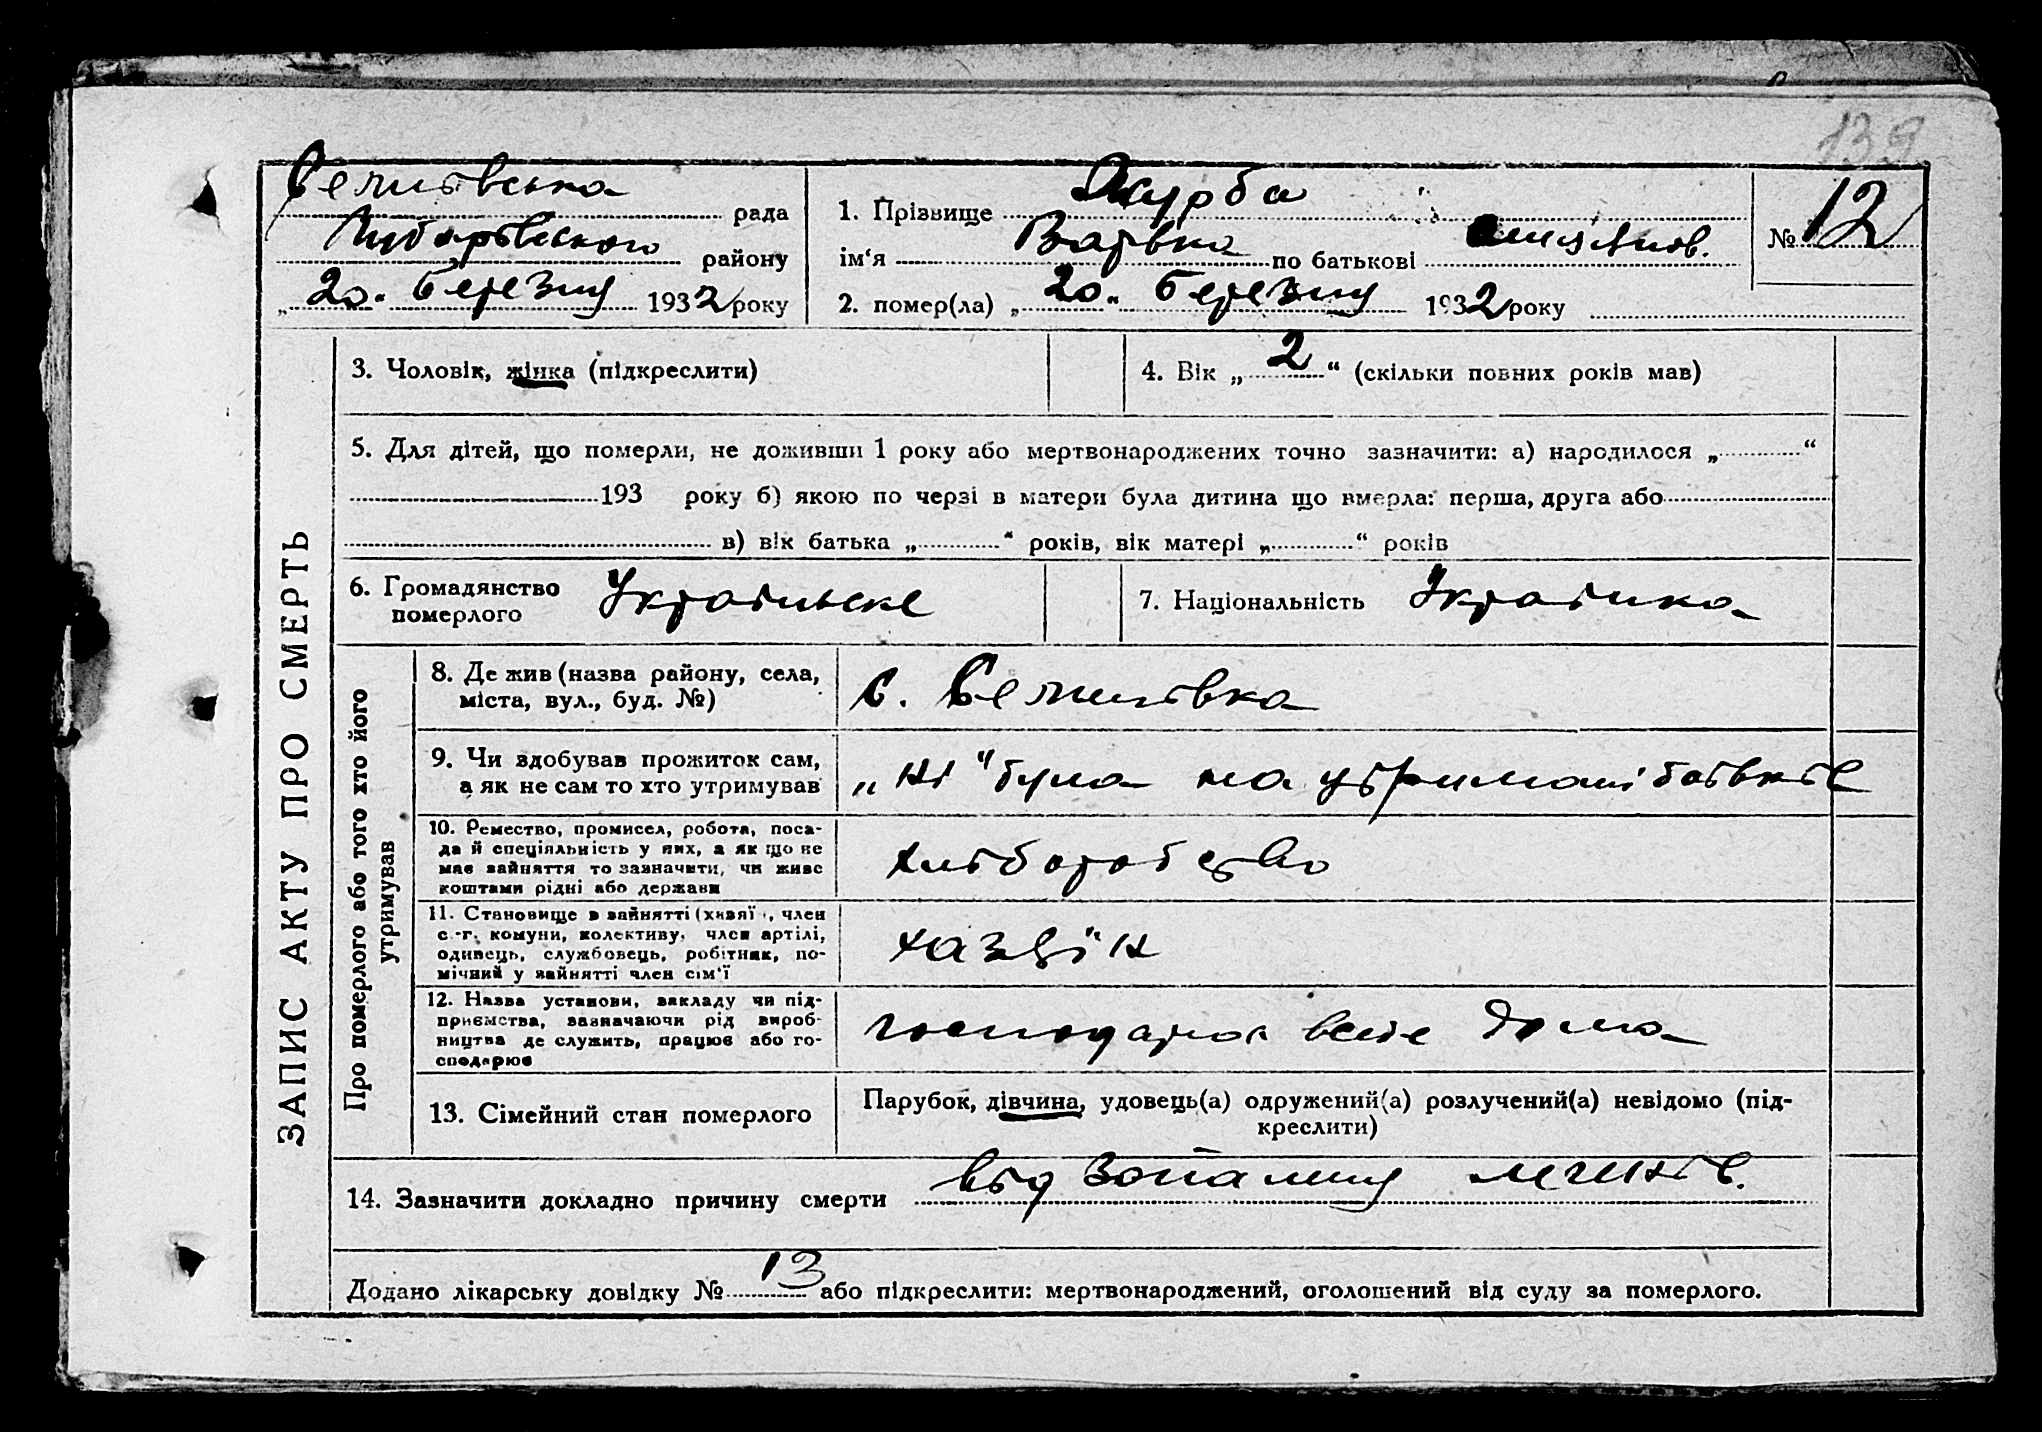 139
Велитівська рада
Любарівського району
„20" березня 1932 року
1. Прізвище Журба
ім‘я по батькові
2. помер(ла) „20" березня 1932 року
№ 12
ЗАПИС АКТУ ПРО СМЕРТЬ
3. Чоловік, жінка (підкреслити)
4. Вік „2“ (скільки повних років мав)
5. Для дітей, що померли, не доживши 1 року або мертвонароджених точно зазначити: а) народилося „ “
193 року б) якою по черзі в матери була дитина що вмерла: перша, друга або
в) вік батька „ “ років, вік матері „ “ років
6. Громадянство
померлого
Українське
7. Національність Українка
Про померлого або того хто його
утримував
8. Де жив (назва району, села,
міста, вул., буд. №)
с.
9. Чи здобував прожиток сам,
а як не сам то хто утримував
„ні" була на утримані батьків
10. Ремество, промисел, робота, поса-
да й спеціяльність у них, а як що не
має зайняття то зазначити, чи живе
коштами рідні або держави
хліборобство
11. Становище в зайнятті (хазяї , член
с.-г. комуни, колективу, член артілі,
одинець, службовець, робітник, по-
мічний у зайнятті член сім‘ї
хазяїн
12. Назва установи, закладу чи під-
приємства, зазначаючи рід вироб-
ництва де служить, працює або го-
сподарює
господарює дома
13. Сімейний стан померлого
Парубок, дівчина, удовець(а) одружений(а) розлучений(а) невідомо (під-
креслити)
14. Зазначити докладно причину смерти від запалення легенів.
Додано лікарську довідку № 13 або підкреслити: мертвонароджений, оголошений від суду за померлого.